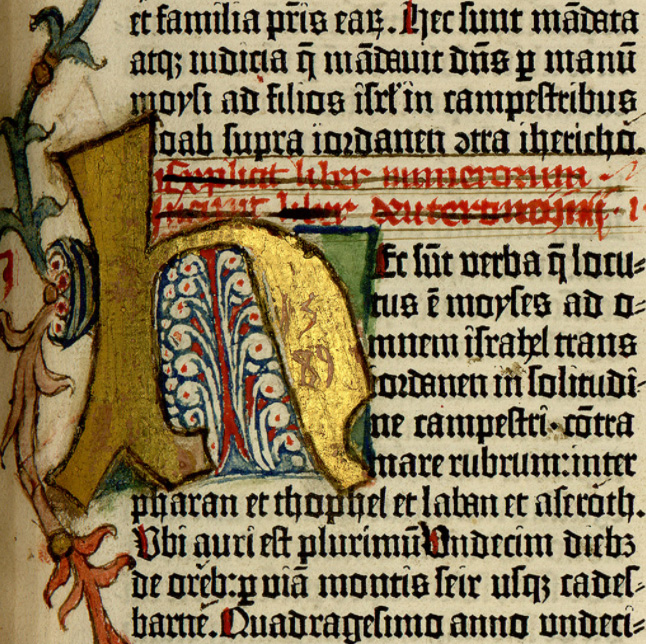 et familia pr̄is eaꝝ. Hec sunt mādata
atqꝫ iudicia q̄ mādavit dn̄s ꝑ manū
moysi ad filios isrl̄ in campestribus
moab supra iordanen ↄtra iherichō.
Explicit liber numerorum
Incipit liber deuteronomij. i
Hec sūt verba q̄ locu⸗
tus ē moyses ad o⸗
mnem israhel trans
iordanen in solitudi⸗
ne campestri. cōtra
mare rubrum: inter
pharan et thophel et laban et aseroth.
Ubi auri est plurimū Undecim diebꝫ
de oreb: ꝑ viā montis seir usqꝫ cades⸗
barne. Quadragesimo anno undeci⸗
15
89